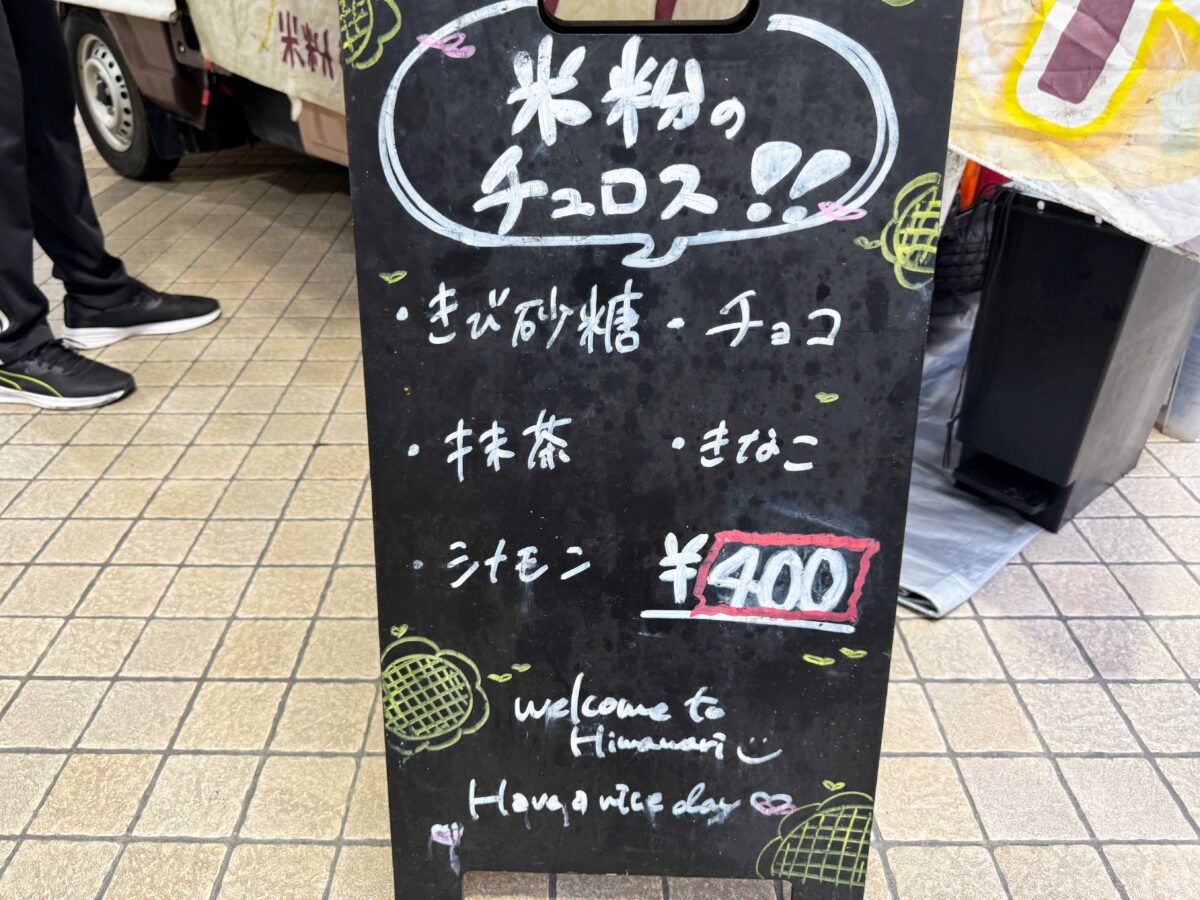 米粉
米粉の
チュロス!!
・きび砂糖 ・チョコ
・抹茶 ・きなこ
・シナモン ¥400
welcome to
Himawari
Have a nice day